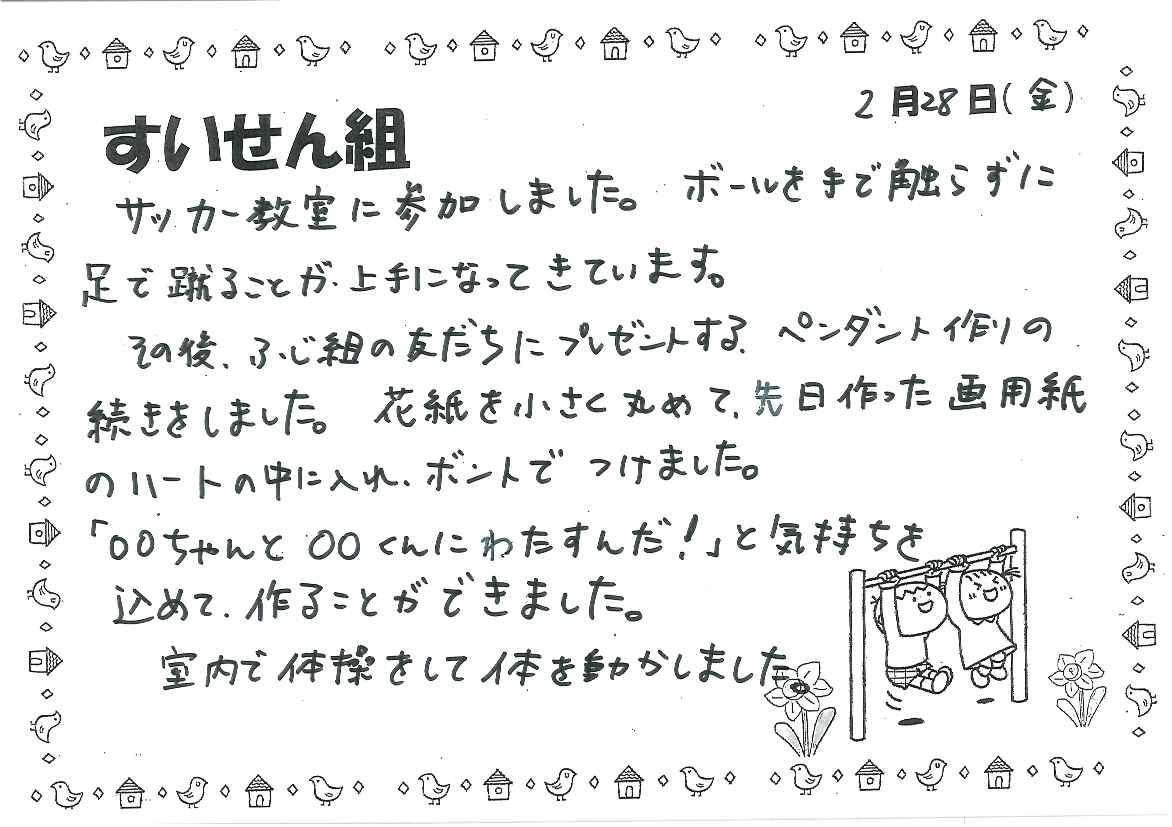 2月28日(金)
すいせん組
サッカー教室に参加しました。 ボールを手で触らずに
足で蹴ることが上手になってきています。
その後、ふじ組の友だちにプレゼントする、ペンダント作りの
続きをしました。 花紙を小さく丸めて、先日作った画用紙
のハートの中に入れ、ボントでつけました。
「〇〇ちゃんと〇〇くんにわたすんだ!」と気持ちを
込めて、作ることができました。
室内で体操をして体を動かしました